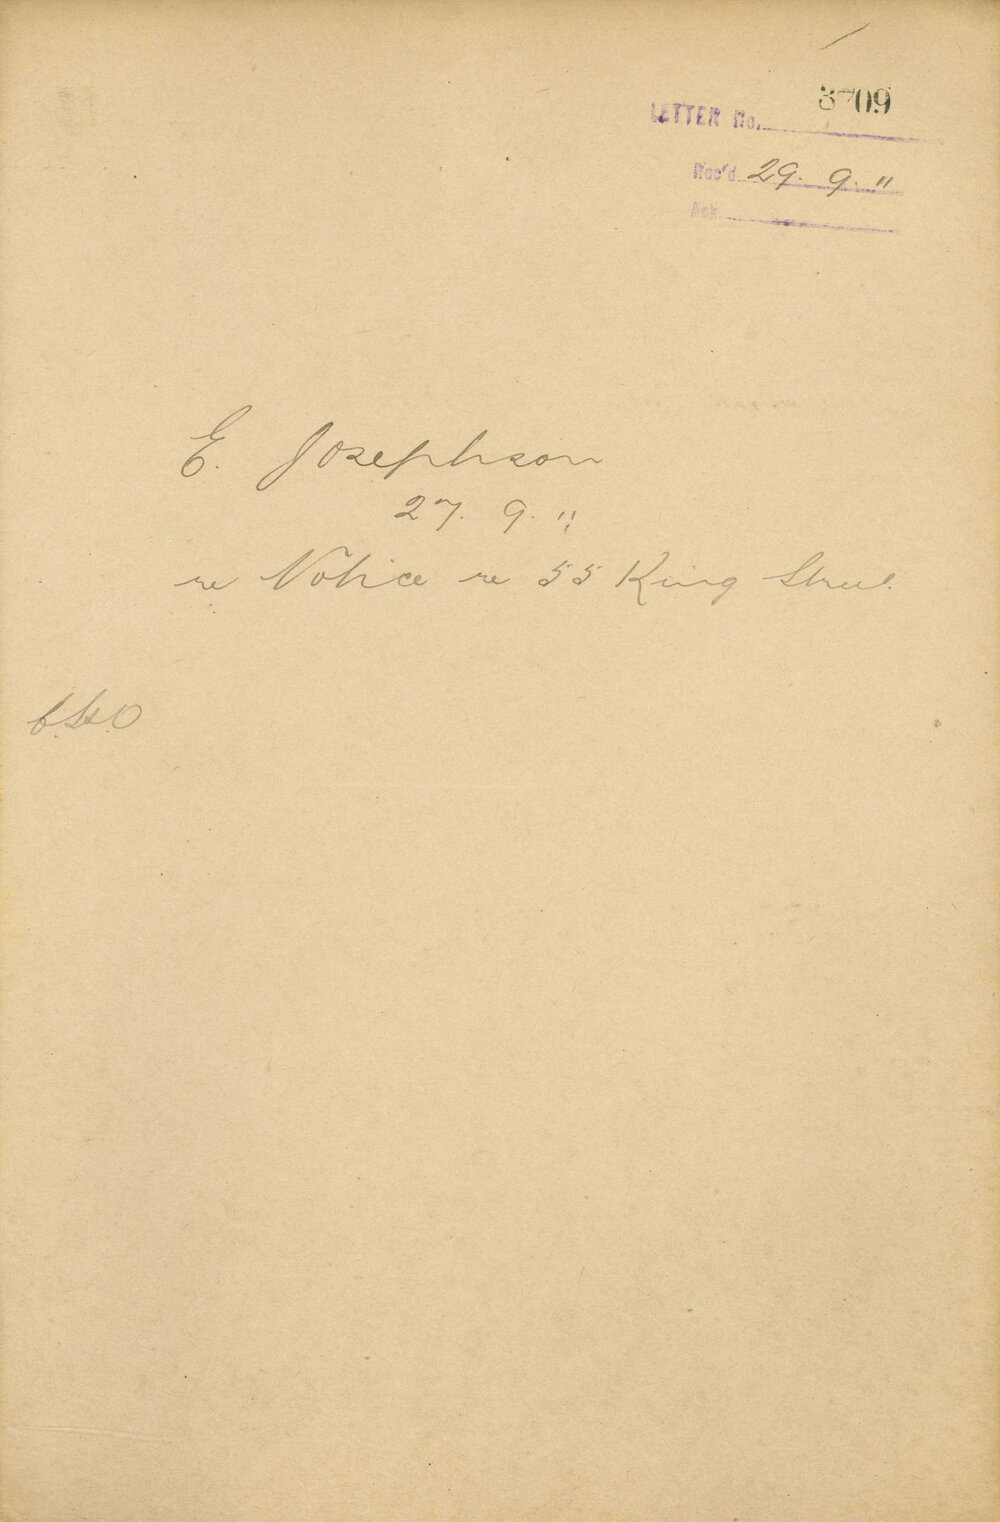 LETTER No. 3709
Rec'd 29. 9. 11
Ack.
E. Josephson
27. 9. 11
re Notice re 55 King Street.